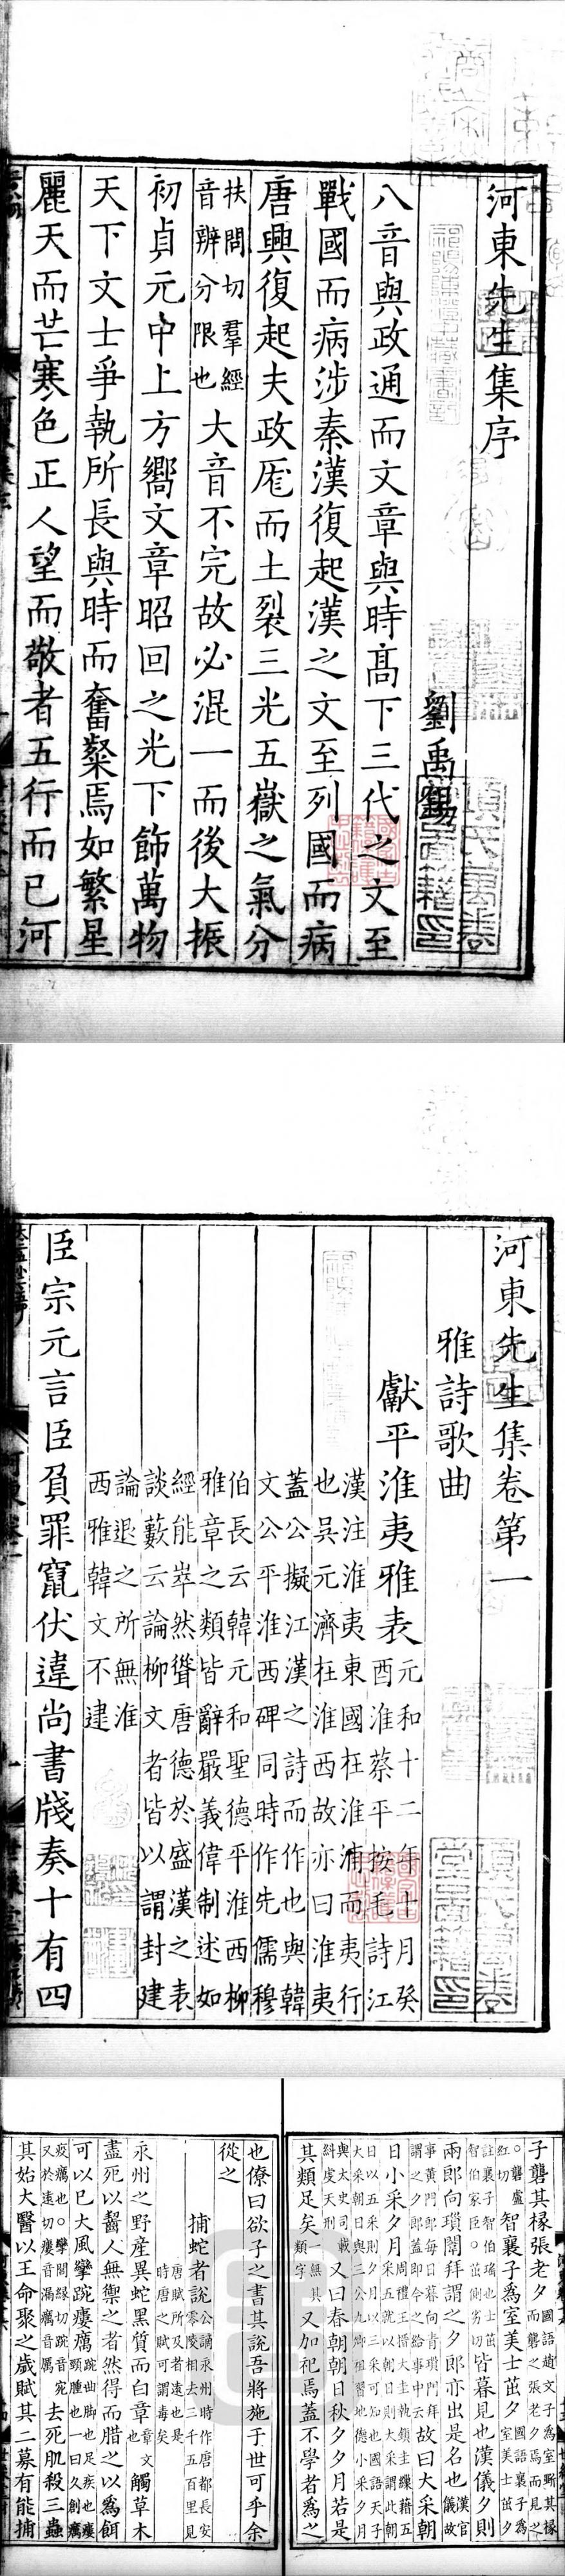 河東先生集序
劉禹錫
八音與政通而文章與時髙下三代之文至
戰國而病涉秦漢復起漢之文至列國而病
唐興復起夫政厖而土裂三光五嶽之氣分
扶問切羣經
音辨分限也
大音不完故必混一而後大振
初貞元中上方嚮文章昭回之光下飾萬物
天下文士爭執所長與時而奮粲焉如繁星
麗天而芒寒色正人望而敬者五行而已河
河東先生集卷第一
雅詩歌曲
獻平淮夷雅表
元和十二年十月癸
酉淮蔡平按毛詩江
漢注淮夷東國在淮浦而夷行
也吳元濟在淮西故亦曰淮夷
蓋公擬江漢之詩而作也與韓
文公平淮西碑同時作先儒穆
伯長云韓元和聖德平淮西柳
雅章之類皆辭嚴義偉制述如
經能崒然聳唐德於盛漢之表
談藪云論柳文者皆以謂封建
論退之所無淮
西雅韓文不逮
臣宗元言臣負罪竄伏違尚書牋奏十有四
子礱其椽張老夕
國語趙文子為室斲其椽
而礱之張老夕焉而見之
智襄子為室美士茁夕
皆暮見也漢儀夕則
兩郎向瑣闈拜謂之夕郎亦出是名也
故曰大采朝
日小采夕月
又曰春朝朝日秋夕夕月若是
其類足矣
一無其
類字
又加祀焉蓋不學者為之
也僚曰欲子之書其說吾將施于世可乎余
從之
捕蛇者說
公謫永州時作唐都長安
零陵相去三千五百里見
唐賦所及者遠也是
時唐之賦可謂毒矣
永州之野産異蛇黑質而白章
章文
也
觸草木
盡死以齧人無禦之者然得而腊之以為餌
可以已大風攣踠瘻癘
去死肌殺三蟲
其始大醫以王命聚之歲賦其二募有能捕